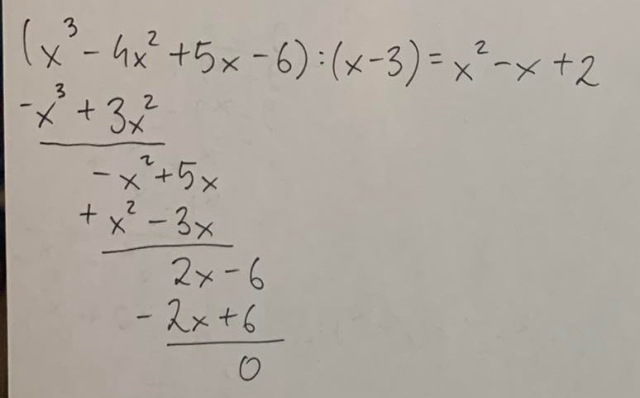 (x³ - 4x² + 5x - 6) : (x - 3) = x² - x + 2
-x³ + 3x²
-x² + 5x
+x² - 3x
2x - 6
-2x + 6
0